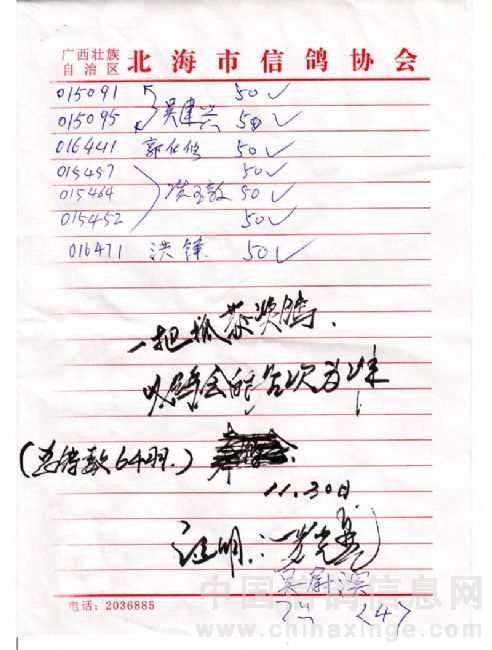 广西壮族
自治区 北海市信鸽协会
015091 50✓
015095 吴建兴 50✓
016441 郭 50✓
015457 50✓
015464 50✓
015452 50✓
016471 洪锋 50✓
一把抓获奖鸽.
以鸽会的名次为准
(总鸽数64羽.)
11.30日
证明:
吴蔚溪
电话:2036885
中国信鸽信息网
www.chinaxinge.com